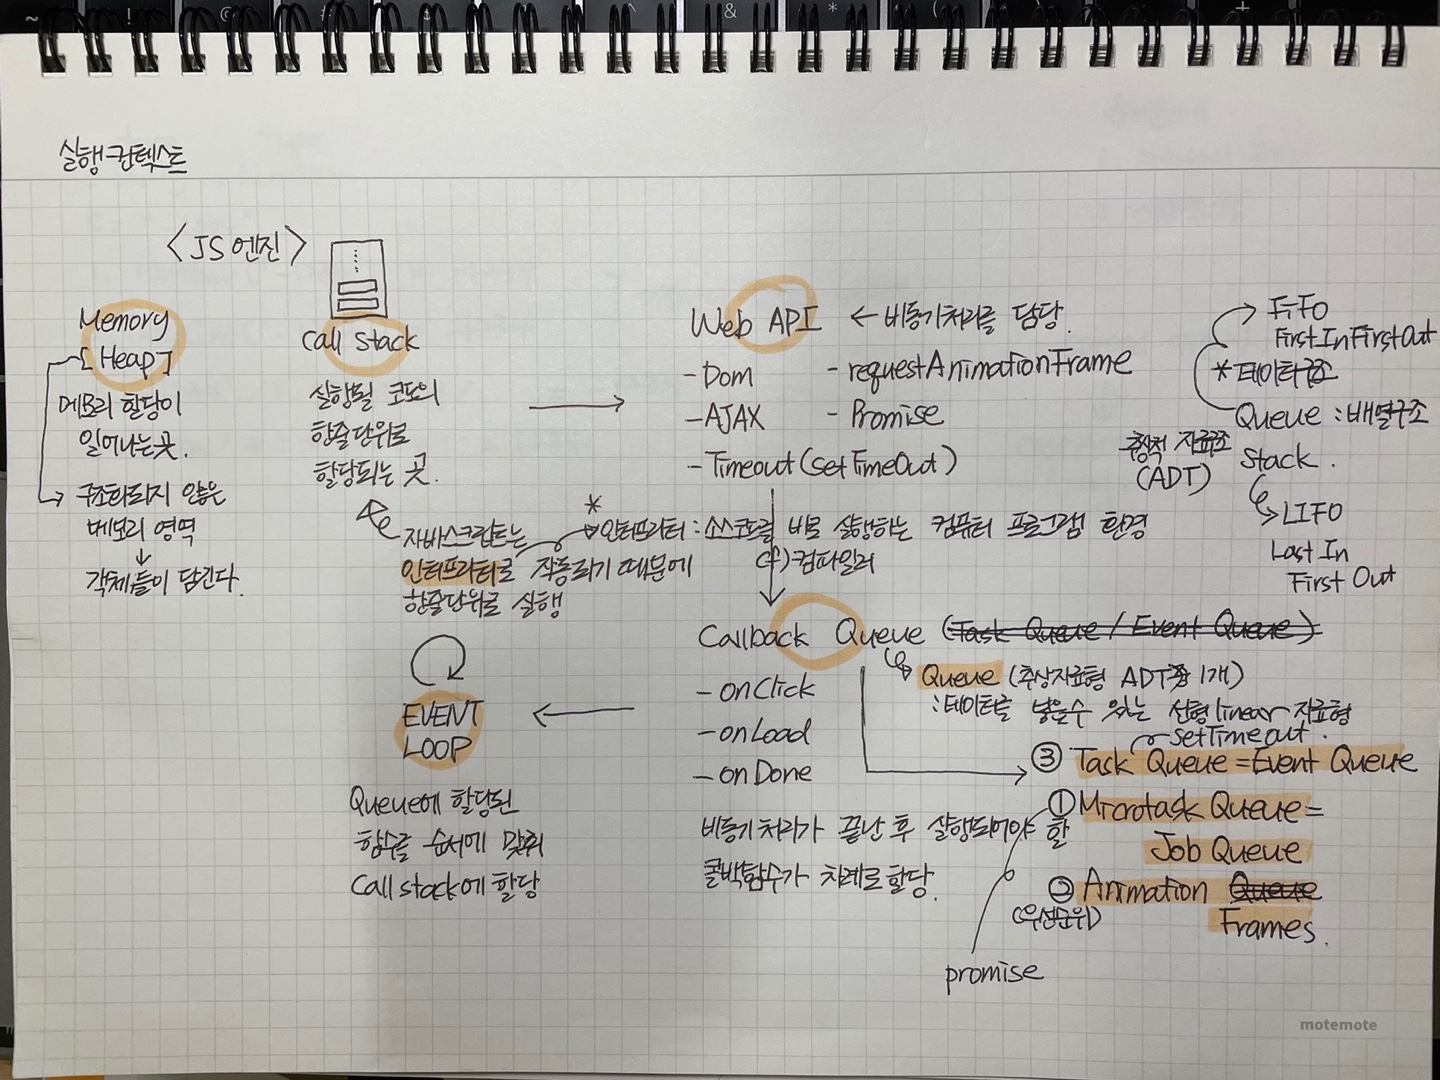 실행컨텍스트
<JS엔진>
Memory
[Heap]
메모리 할당이
일어나는 곳.
구조화되지 않은
메모리 영역
↓
객체들이 담긴다.
Call Stack
실행될 코드의
한줄단위로
할당되는 곳.
자바스크립트는
인터프리터로 작동되기 때문에
한줄단위로 실행
* 인터프리터 : 소스코드를 바로 실행하는 컴퓨터 프로그램 환경
cf) 컴파일러
Web API ← 비동기처리를 담당.
- Dom
- AJAX
- Timeout (setTimeOut)
- requestAnimationFrame
- Promise
FiFo
First In First Out
* 데이터구조
Queue : 배열구조
Stack.
추상적 자료구조
(ADT)
LIFO
Last In
First Out
Callback Queue (Task Queue / Event Queue)
- onClick
- onLoad
- onDone
비동기처리가 끝난 후 실행되어야 할
콜백함수가 차례로 할당.
Queue (추상자료형 ADT중 1개)
: 데이터를 넣을수 있는 선형linear 자료형
setTimeout.
③ Task Queue = Event Queue
① Microtask Queue =
Job Queue
② Animation Queue
Frames.
(우선순위)
promise
EVENT
LOOP
Queue에 할당된
함수를 순서에 맞춰
Call stack에 할당
motemote